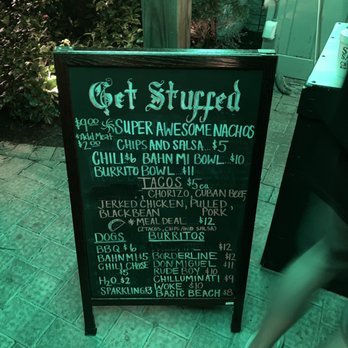 Get Stuffed
$9.00 SUPER AWESOME NACHOS
+Add Meat $2.00
CHIPS AND SALSA... $5
CHILI $6 BAHN MI BOWL.. $10
BURRITO BOWL... $11
TACOS $5ea
CHORIZO, CUBAN BEEF,
JERKED CHICKEN, PULLED
BLACK BEAN PORK
MEAL DEAL ... $12
(2 TACOS, CHIPS AND SALSA)
DOGS BURRITOS
BBQ $6 $12
BAHN MI $5 BORDERLINE $12
CHILI CHEESE DON MIGUEL $11
$5 RUDE BOY $10
H2O $2 CHILLUMINATI $9
SPARKLING $3 WOKE $10
BASIC BEACH $8